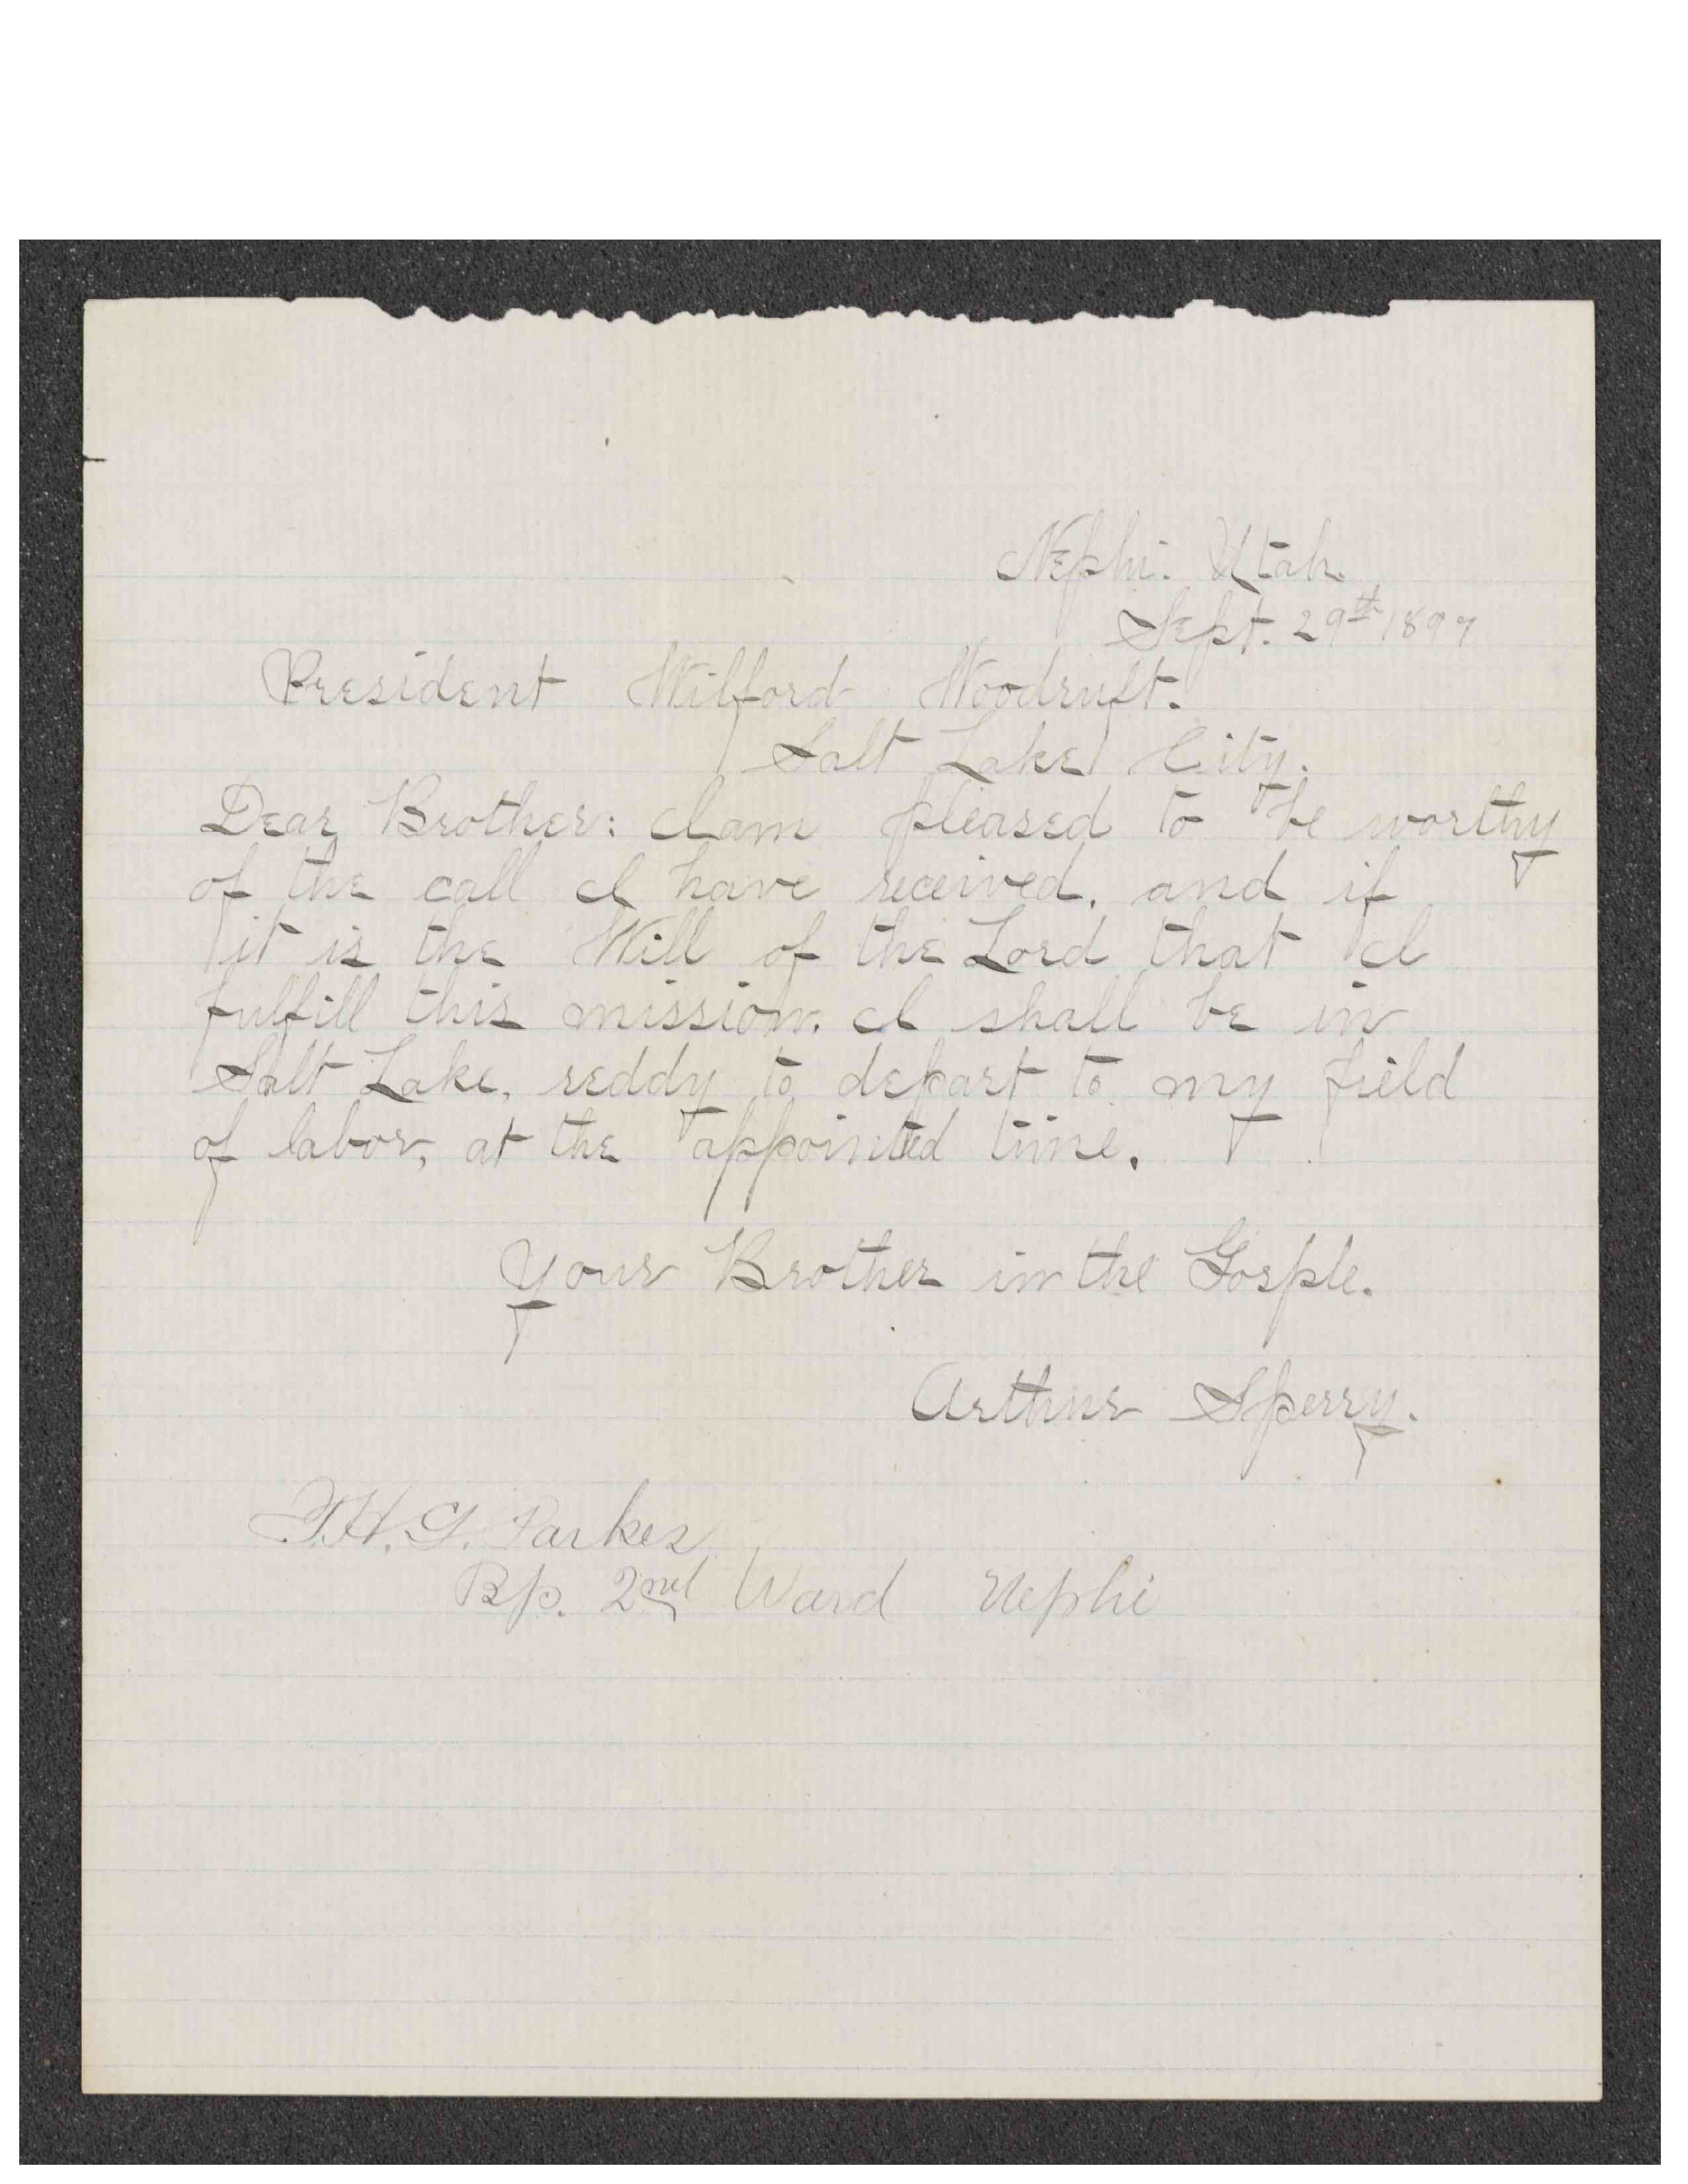 Nephi. Utah.
Sept. 29th 1897
President Wilford Woodruff.
Salt Lake City.
Dear Brother: I am pleased to be worthy
of the call I have received. and if
it is the Will of the Lord that I
fulfill this mission. I shall be in
Salt Lake, reddy to depart to my field
of labor, at the appointed time.
Your Brother in the Gosple.
Arthur Sperry.
T.H.G. Parkes
Bp. 2nd Ward Nephi